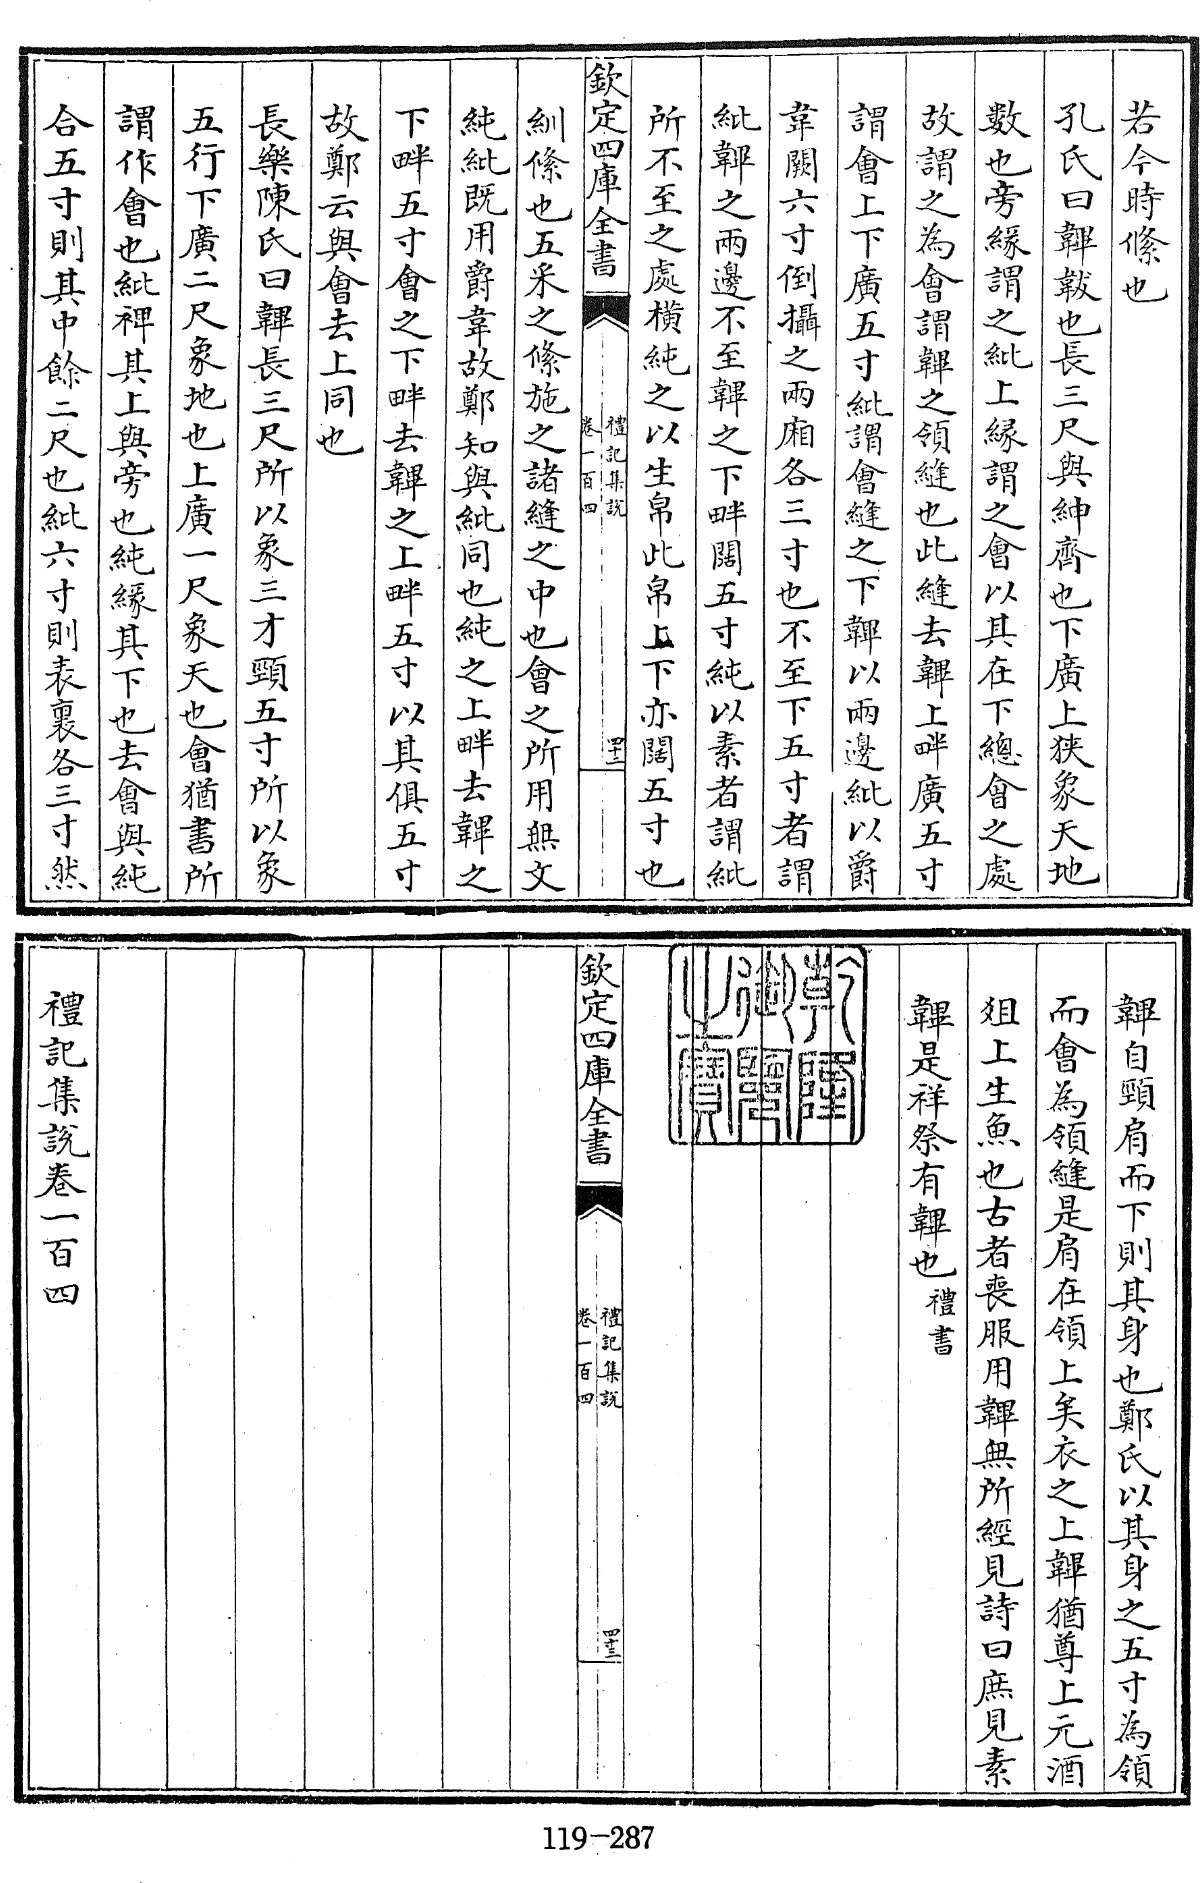 若今時絛也
孔氏曰韠韍也長三尺與紳齊也下廣上狹象天地
數也旁緣謂之紕上緣謂之會以其在下總會之處
故謂之為會謂韠之領縫也此縫去韠上畔廣五寸
謂會上下廣五寸紕謂會縫之下韠以兩邊紕以爵
韋闕六寸倒攝之兩廂各三寸也不至下五寸者謂
紕韠之兩邊不至韠之下畔闊五寸純以素者謂紕
所不至之處橫純之以生帛此帛上下亦闊五寸也
欽定四庫全書
禮記集說
卷一百四
四十三
紃絛也五采之絛施之諸縫之中也會之所用無文
純紕既用爵韋故鄭知與紕同也純之上畔去韠之
下畔五寸會之下畔去韠之上畔五寸以其俱五寸
故鄭云與會去上同也
長樂陳氏曰韠長三尺所以象三才頸五寸所以象
五行下廣二尺象地也上廣一尺象天也會猶書所
謂作會也紕裨其上與旁也純緣其下也去會與純
合五寸則其中餘二尺也紕六寸則表裏各三寸然
韠自頸肩而下則其身也鄭氏以其身之五寸為領
而會為領縫是肩在領上矣衣之上韠猶尊上元酒
俎上生魚也古者喪服用韠無所經見詩曰庶見素
韠是祥祭有韠也禮書
乾隆御覽之寶
欽定四庫全書
禮記集說
卷一百四
四十三
禮記集說卷一百四
119-287